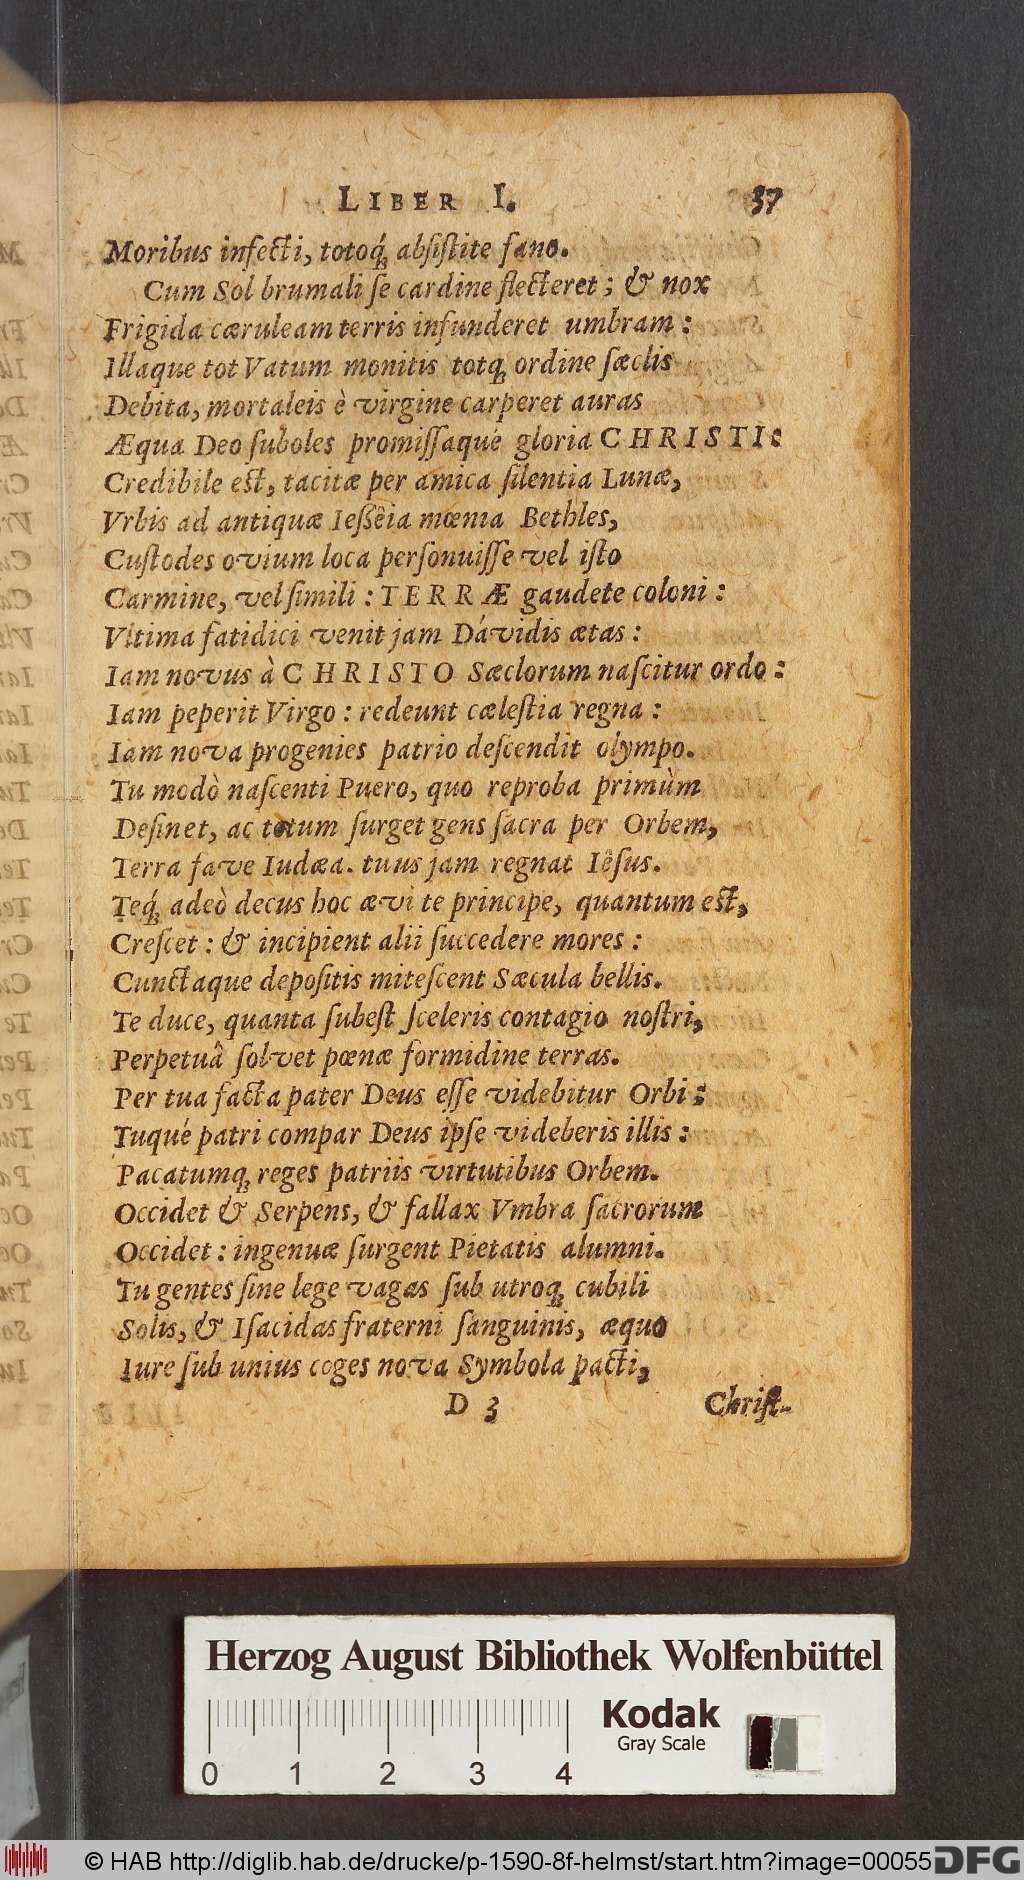 LIBER I. 37
Moribus infecti, totoq́; absistite fano.
Cum Sol brumali se cardine flecteret; & nox
Frigida cæruleam terris infunderet umbram:
Illaque tot Vatum monitis totq; ordine sæclis
Debita, mortaleis è virgine carperet auras
Æqua Deo suboles promissaque gloria CHRISTI:
Credibile est, tacitæ per amica silentia Lunæ,
Vrbis ad antiquæ Iessêia mœnia Bethles,
Custodes ovium loca personuisse vel isto
Carmine, vel simili: TERRÆ gaudete coloni:
Vltima fatidici venit jam Dávidis ætas:
Iam novus à CHRISTO Sæclorum nascitur ordo:
Iam peperit Virgo: redeunt cælestia regna:
Iam nova progenies patrio descendit olympo.
Tu modò nascenti Puero, quo reproba primùm
Desinet, ac totum surget gens sacra per Orbem,
Terra fave Iudæa. tuus jam regnat Iêsus.
Teq́; adeò decus hoc ævi te principe, quantum est,
Crescet: & incipient alii succedere mores:
Cunctaque depositis mitescent Sæcula bellis.
Te duce, quanta subest sceleris contagio nostri,
Perpetuâ solvet pœnæ formidine terras.
Per tua facta pater Deus esse videbitur Orbi:
Tuqué patri compar Deus ipse videberis illis:
Pacatumq; reges patriis virtutibus Orbem.
Occidet & Serpens, & fallax Vmbra sacrorum
Occidet: ingenuæ surgent Pietatis alumni.
Tu gentes sine lege vagas sub utroq; cubili
Solis, & Isacidas fraterni sanguinis, æquo
Iure sub unius coges nova Symbola pacti,
D 3 Christ-
Herzog August Bibliothek Wolfenbüttel
Kodak
Gray Scale
0 1 2 3 4
© HAB http://diglib.hab.de/drucke/p-1590-8f-helmst/start.htm?image=00055 DFG